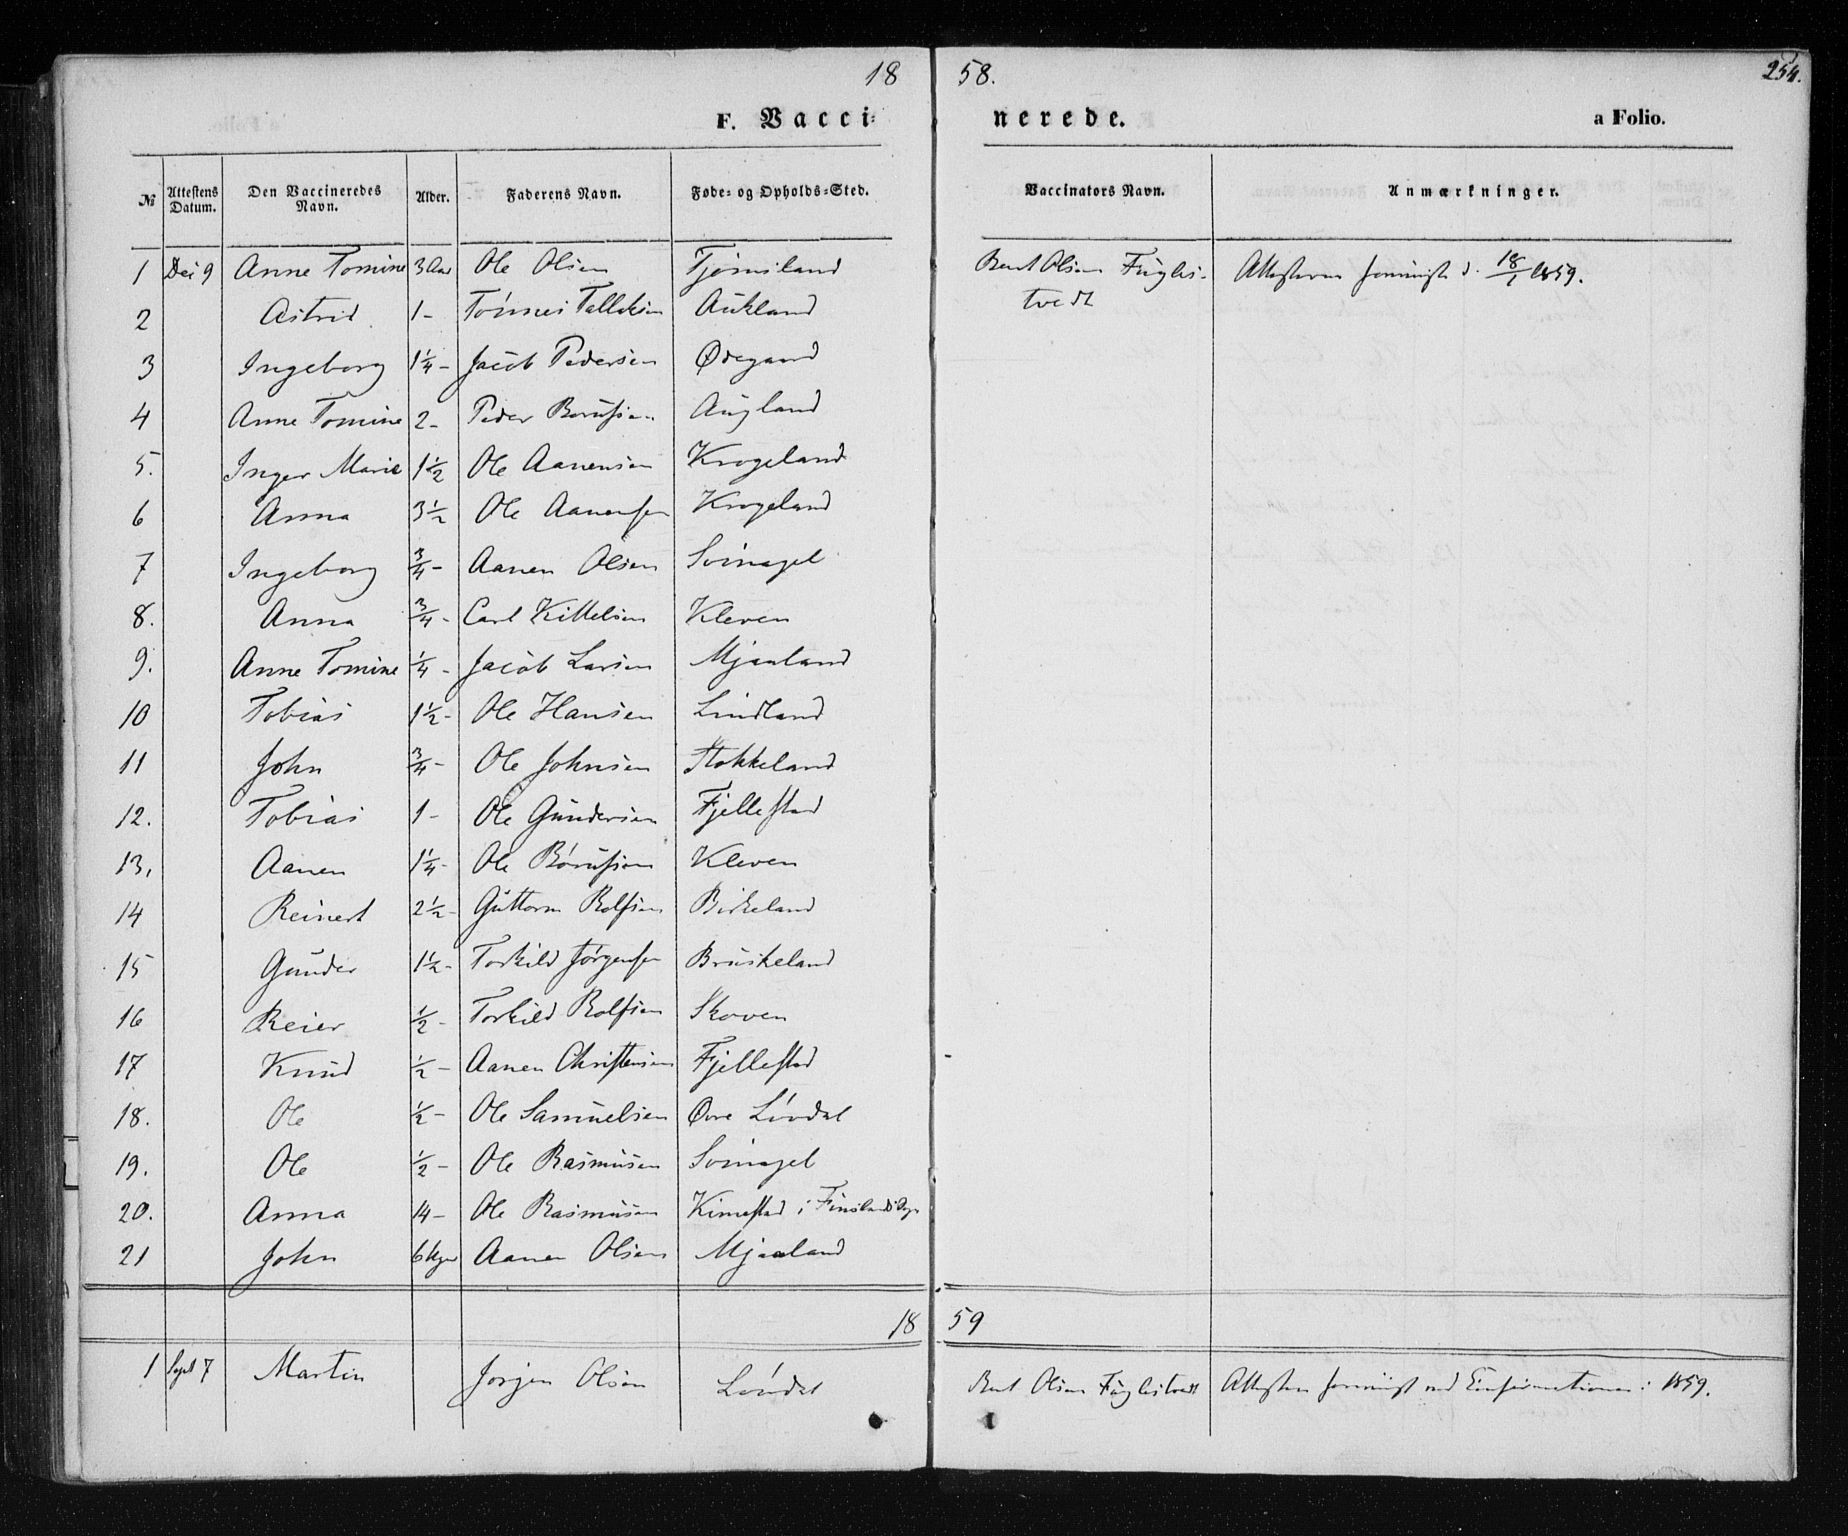 18 58. 254.
F. Vacci= nerede. a Folio.
№ Attestens Datum. Den Vaccineredes Navn. Alder. Faderens Navn. Føde= og Opholds=Sted. Vaccinators Navn. Anmærkninger.
1 Dec 9 Anne Tomine 3 Aar Ole Olsen Tjomsland Bent Olsen Fuglestvedt d. 18/1 1859.
2 Astrid 1 - Tønnes Tallaksen Aukland
3 Ingeborg 1¼ - Jacob Pedersen Ødegaard
4 Anne Tomine 2 - Peder Augland
5. Inger Marie 1½ Ole Aanensen Krogeland
6 Anna 3½ Ole Aanensen Krogeland
7 Ingeborg ¾ - Aanen Olsen Svinagel
8. Anna ¾ - Carl Kittelsen Kleven
9. Anne Tomine ¼ - Jacob Larsen Mjaaland
10 Tobias 1½ - Ole Hansen Lindland
11 John ¾ - Ole Johnsen Stokkeland
12. Tobias 1 - Ole Gundersen Fjellestad
13. Aanen 1¼ - Ole Kleven
14 Reinert 2½ - Guttorm Rolfsen Birkeland
15 Gunder 1½ - Torkild Jørgensen Bruskeland
16 Reier ½ - Torkild Rolfsen Skoven
17 Knud ½ - Aanen Christensen Fjellestad
18. Ole ½ - Ole Samuelsen Øvre Løvdal
19. Ole ½ - Ole Rasmusen Svinagel
20. Anna 14 - Ole Rasmusen Kimestad i Finslands Sogn
21 John 6 Uger Aanen Olsen Mjaaland
18 59
1 Sept 7 Martin Jørgen Olsen Løvdal Bent Olsen Fuglestvedt Attesten ved Confirmationen i 1859.